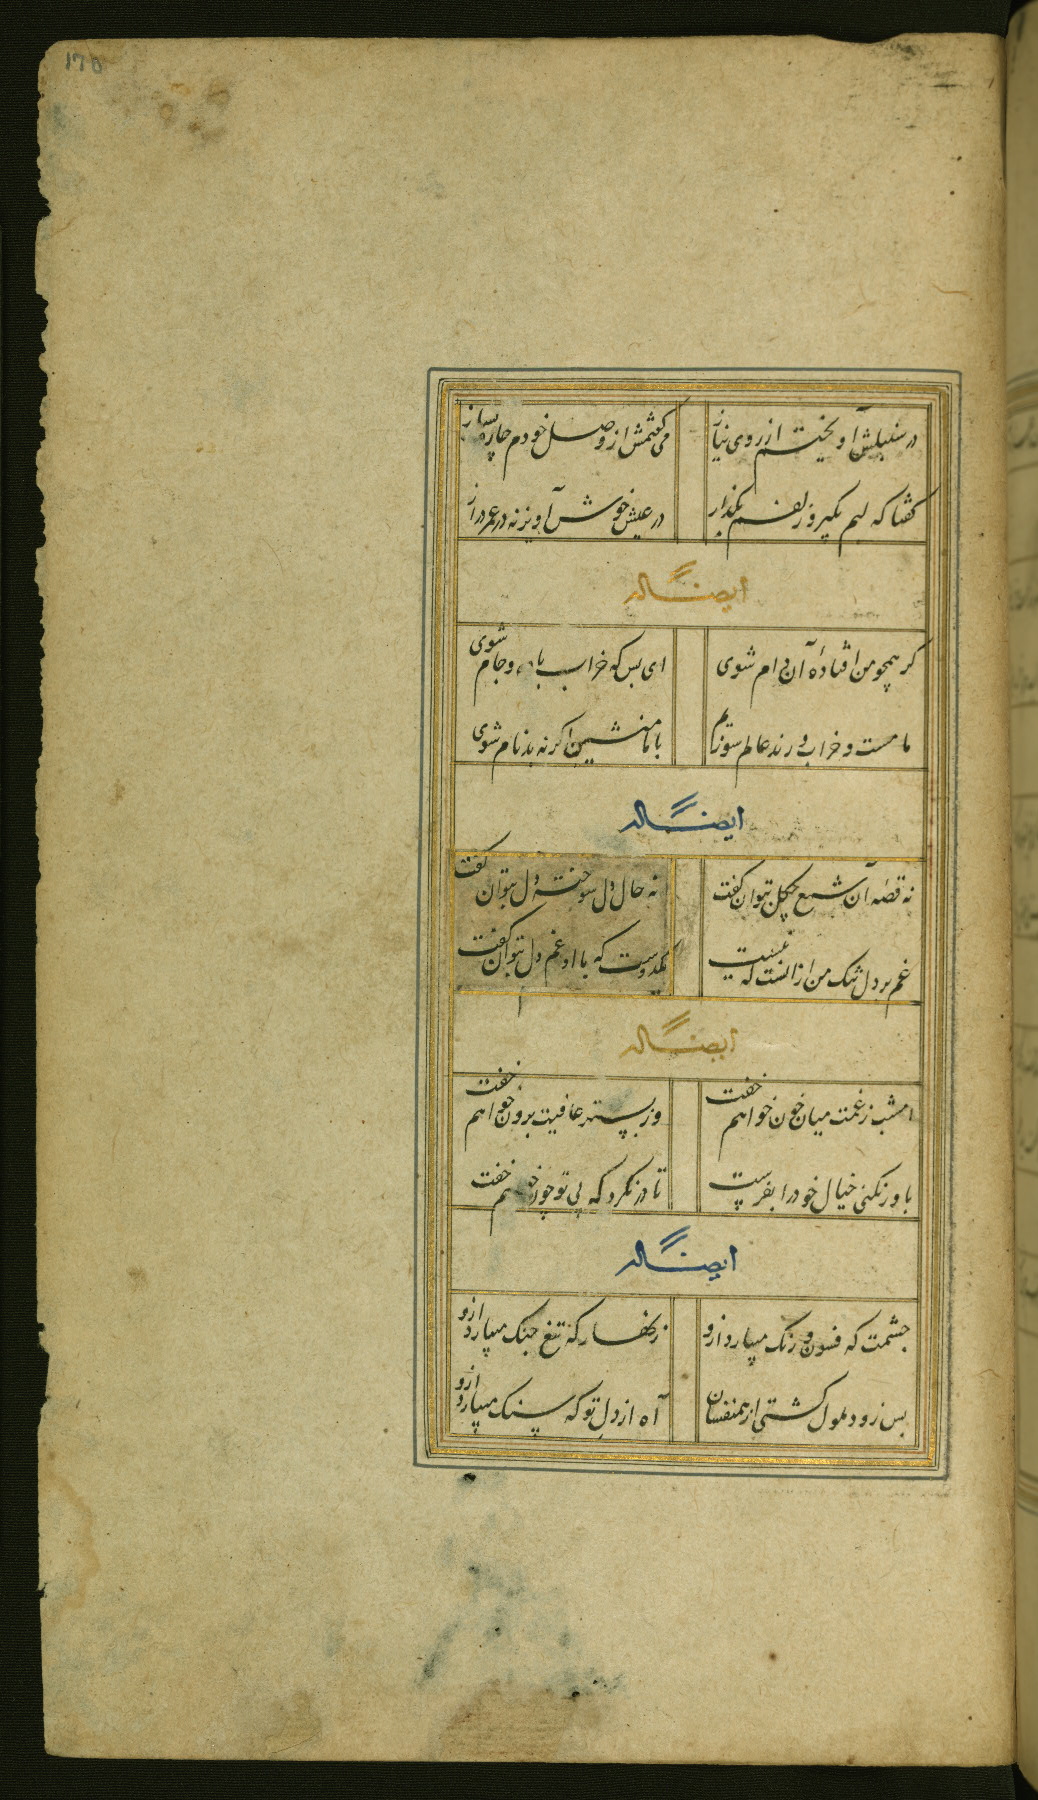 170
در سنبلش آویختم از روی نیاز می گفتمش از وصل خودم چاره بساز
گفتا که لبم بگیر و زلفم بگذار در عیش خوش آویز نه در عمر دراز
ایضا له
کر همچو من افتادهٔ آن دام شوی ای بس که خراب باده و جام شوی
ما مست و خراب و رند عالم سوزیم با ما منشین اکرنه بدنام شوی
ایضا له
نه قصّه آن شمع چکل بتوان کفت نه حال دل سوخته دل بتوان کفت
غم بر دل تنک من از انست که نیست یکدوست که با او غم دل بتوان کفت
ایضا له
امشب ز غمت میان خون خواهم خفت وز بستر عافیت برون خواهم خفت
باور نکنی خیال خود را بفرست تا در نکرد که بی تو چون خواهم خفت
ایضا له
چشمت که فسون و رنک میبارد ازو زنهار که تیغ جنک میبارد ازو
بس زود ملول کشتی از همنفسان آه از دل تو که سنک میبارد ازو